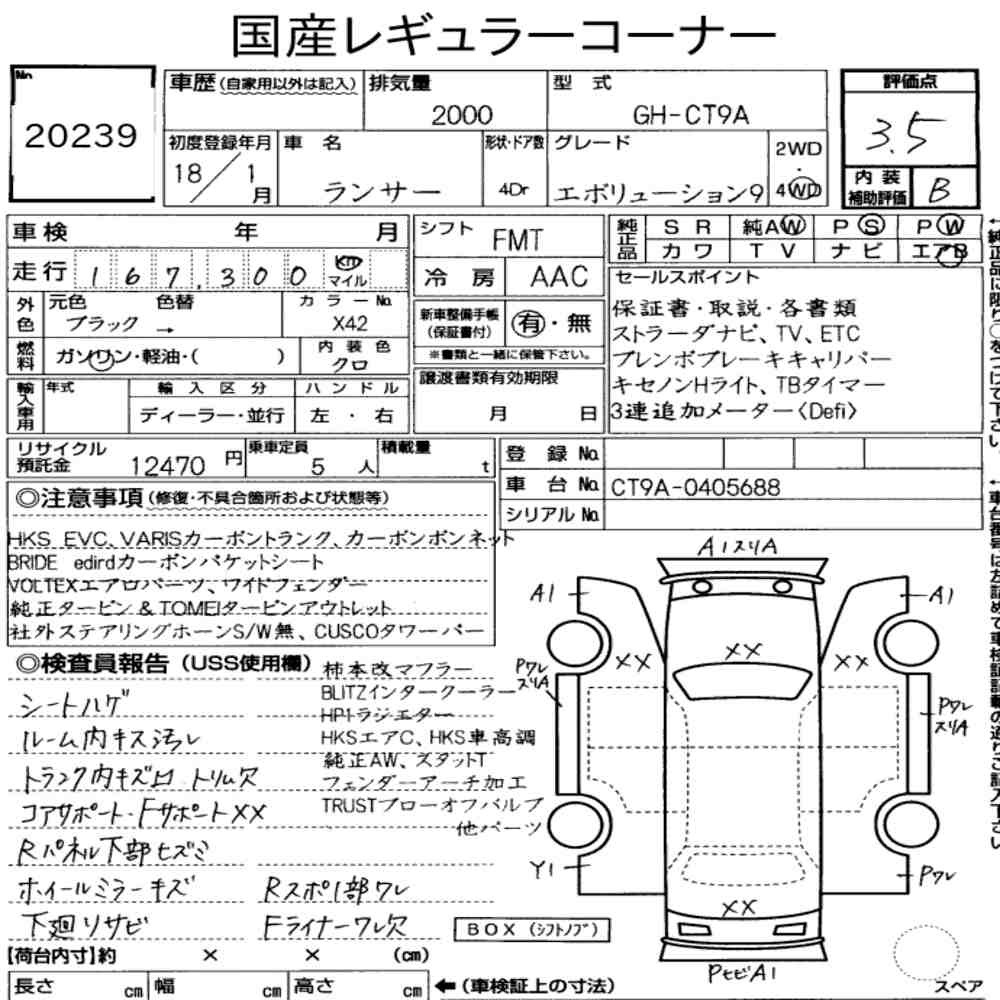 国産レギュラーコーナー
No.
20239
車歴(自家用以外は記入)
排気量
2000
型 式
GH-CT9A
評価点
3.5
初度登録年月
18/1月
車 名
ランサー
形状・ドア数
4Dr
グレード
エボリューション9
2WD
・
4WD
内装補助評価
B
車検 年 月
走行 167,300 km マイル
シフト
FMT
冷 房
AAC
純正品
S R 純AW P S P W
カワ T V ナビ エアB
セールスポイント
保証書・取説・各書類
ストラーダナビ、TV、ETC
ブレンボブレーキキャリパー
キセノンHライト、TBタイマー
3連追加メーター〈Defi〉
外色
元色 色替
ブラック →
カラーNo.
X42
燃料
ガソリン・軽油・( )
内 装 色
クロ
新車整備手帳
(保証書付)
有・無
※書類と一緒に保管下さい。
譲渡書類有効期限
月 日
輸入車用
年式
輸 入 区 分
ディーラー・並行
ハ ン ド ル
左 ・ 右
リサイクル預託金
12470 円
乗車定員
5 人
積載量
t
登 録 No.
車 台 No. CT9A-0405688
シリアル No.
◎注意事項(修復・不具合箇所および状態等)
HKS EVC、VARISカーボントランク、カーボンボンネット
BRIDE edirdカーボンバケットシート
VOLTEXエアロパーツ、ワイドフェンダー
純正タービン & TOMEIタービンアウトレット
社外ステアリングホーンS/W無、CUSCOタワーバー
◎検査員報告(USS使用欄)
柿本改マフラー
BLITZインタークーラー
HPIラジエター
HKSエアC、HKS車高調
純正AW、スタットT
フェンダーアーチ加工
TRUSTブローオフバルブ
他パーツ
シートハゲ
ルーム内キズ汚レ
トランク内キズ凹 トリム欠
コアサポート・Fサポート××
Rパネル下部ヒズミ
ホイールミラーキズ Rスポ1部ワレ
下廻りサビ Fライナーワレ欠
BOX (シフトノブ)
A1スリA
A1
A1
××
××
××
Pワレ
スリA
Pワレ
スリA
Y1
Pワレ
××
PモヒA1
スペア
【荷台内寸】約 × × (cm)
長さ cm 幅 cm 高さ cm ←(車検証上の寸法)
←純正品に限り○をつけて下さい。